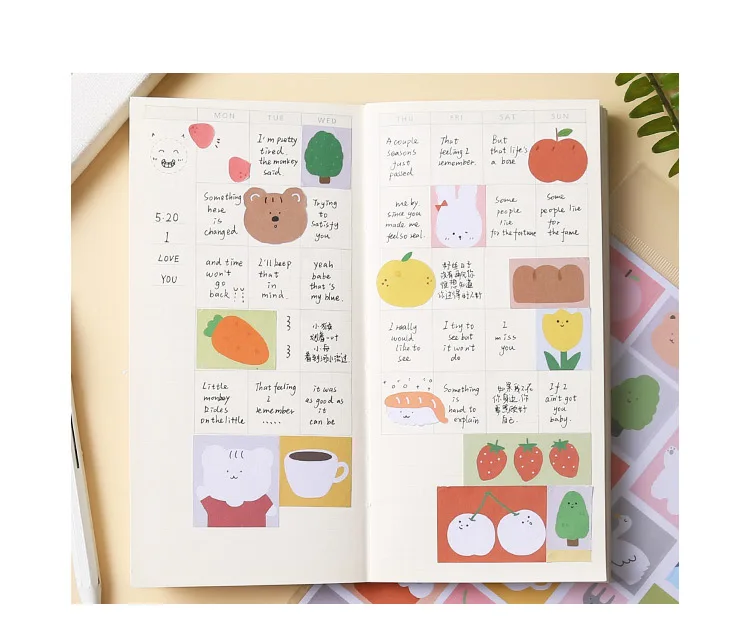 MON TUE WED
THU FRI SAT SUN
5.20
I
LOVE
YOU
I'm pretty
tired.
the monkey
said.
Something
here
is
changed
Trying
to
satisfy
you
and time
won't
go
back
I'll keep
that
in
mind.
yeah
babe
that's
my blue.
Little
monkey
Rides
on the little
That feeling
I
remember
.....
it was
as good as
it
can be
A couple
seasons
just
passed
That
feeling I
remember.
But
that life's
a bore
me by
since you
made me
feel so real.
Some
people
live
for the fortune
Some
people live
for
the fame
I really
would
like to
see
I try to
see but
it won't
do
I
miss
you
Something
is
hard to
explain
如果我不在
你身边,你
自己.
If I
ain't got
you
baby.